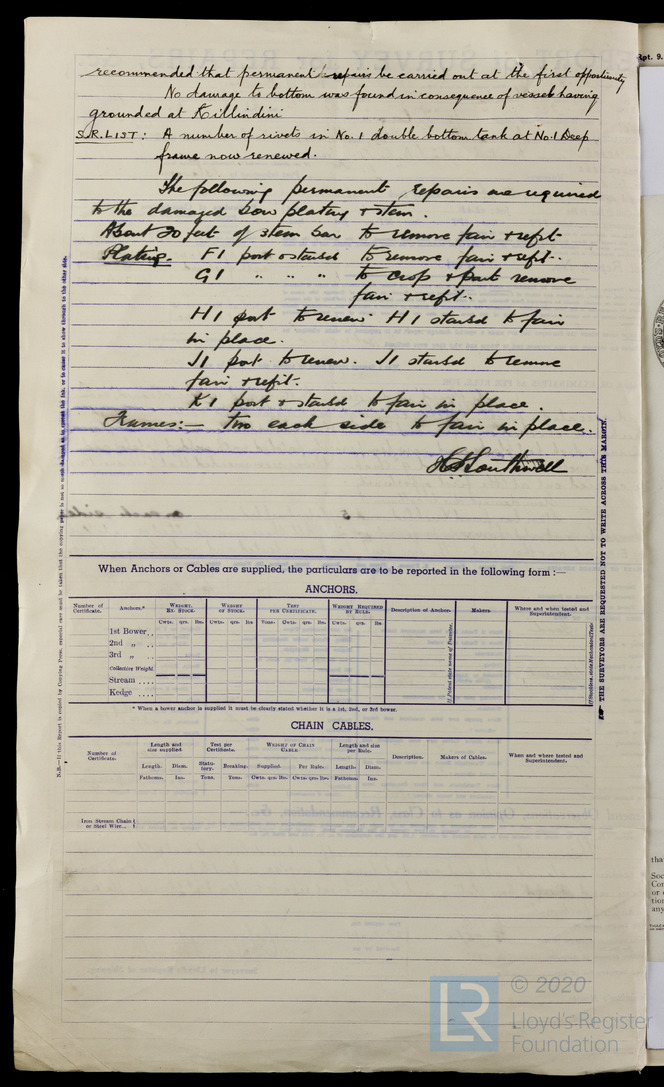 recommended that permanent repairs be carried out at the first opportunity
No damage to bottom was found in consequence of vessel having
grounded at Killindini
S.R. LIST: A number of rivets in No. 1 double bottom tank at No. 1 Deep
frame now renewed.
The following permanent repairs are required
to the damaged bow plating & stem.
About 20 feet of stem bar to remove fair & refit
Plating. F1 port & starbd to remove fair & refit.
G1 " " " to crop & part remove
fair & refit.
H1 port to renew. H1 starbd to fair
in place.
J1 port to renew. J1 starbd to remove
fair & refit.
K1 port & starbd to fair in place.
Frames:- two each side to fair in place.
Southwell
When Anchors or Cables are supplied, the particulars are to be reported in the following form :—
ANCHORS.
Number of Certificate. Anchors.* WEIGHT, EX. STOCK. WEIGHT OF STOCK. TEST PER CERTIFICATE. WEIGHT REQUIRED BY RULE. Description of Anchor. Makers. Where and when tested and Superintendent.
Cwts. qrs. lbs. Cwts. qrs. lbs. Tons. Cwts. qrs. lbs. Cwts. qrs. lbs.
1st Bower..
2nd „ ..
3rd „ ..
Collective Weight.
Stream ....
Kedge ....
If Patent state name of Patentee.
* When a bower anchor is supplied it must be clearly stated whether it is a 1st, 2nd, or 3rd bower.
CHAIN CABLES.
Number of Certificate. Length and size supplied. Test per Certificate. WEIGHT OF CHAIN CABLE. Length and size per Rule. Description. Makers of Cables. When and where tested and Superintendent.
Length. Diam. Statutory. Breaking. Supplied. Per Rule. Length. Diam.
Fathoms. Ins. Tons. Tons. Cwts. qrs. lbs. Cwts. qrs. lbs. Fathoms. Ins.
Iron Stream Chain or Steel Wire...
THE SURVEYORS ARE REQUESTED NOT TO WRITE ACROSS THIS MARGIN.
Rpt. 9.
© 2020
LR
Lloyd's Register
Foundation